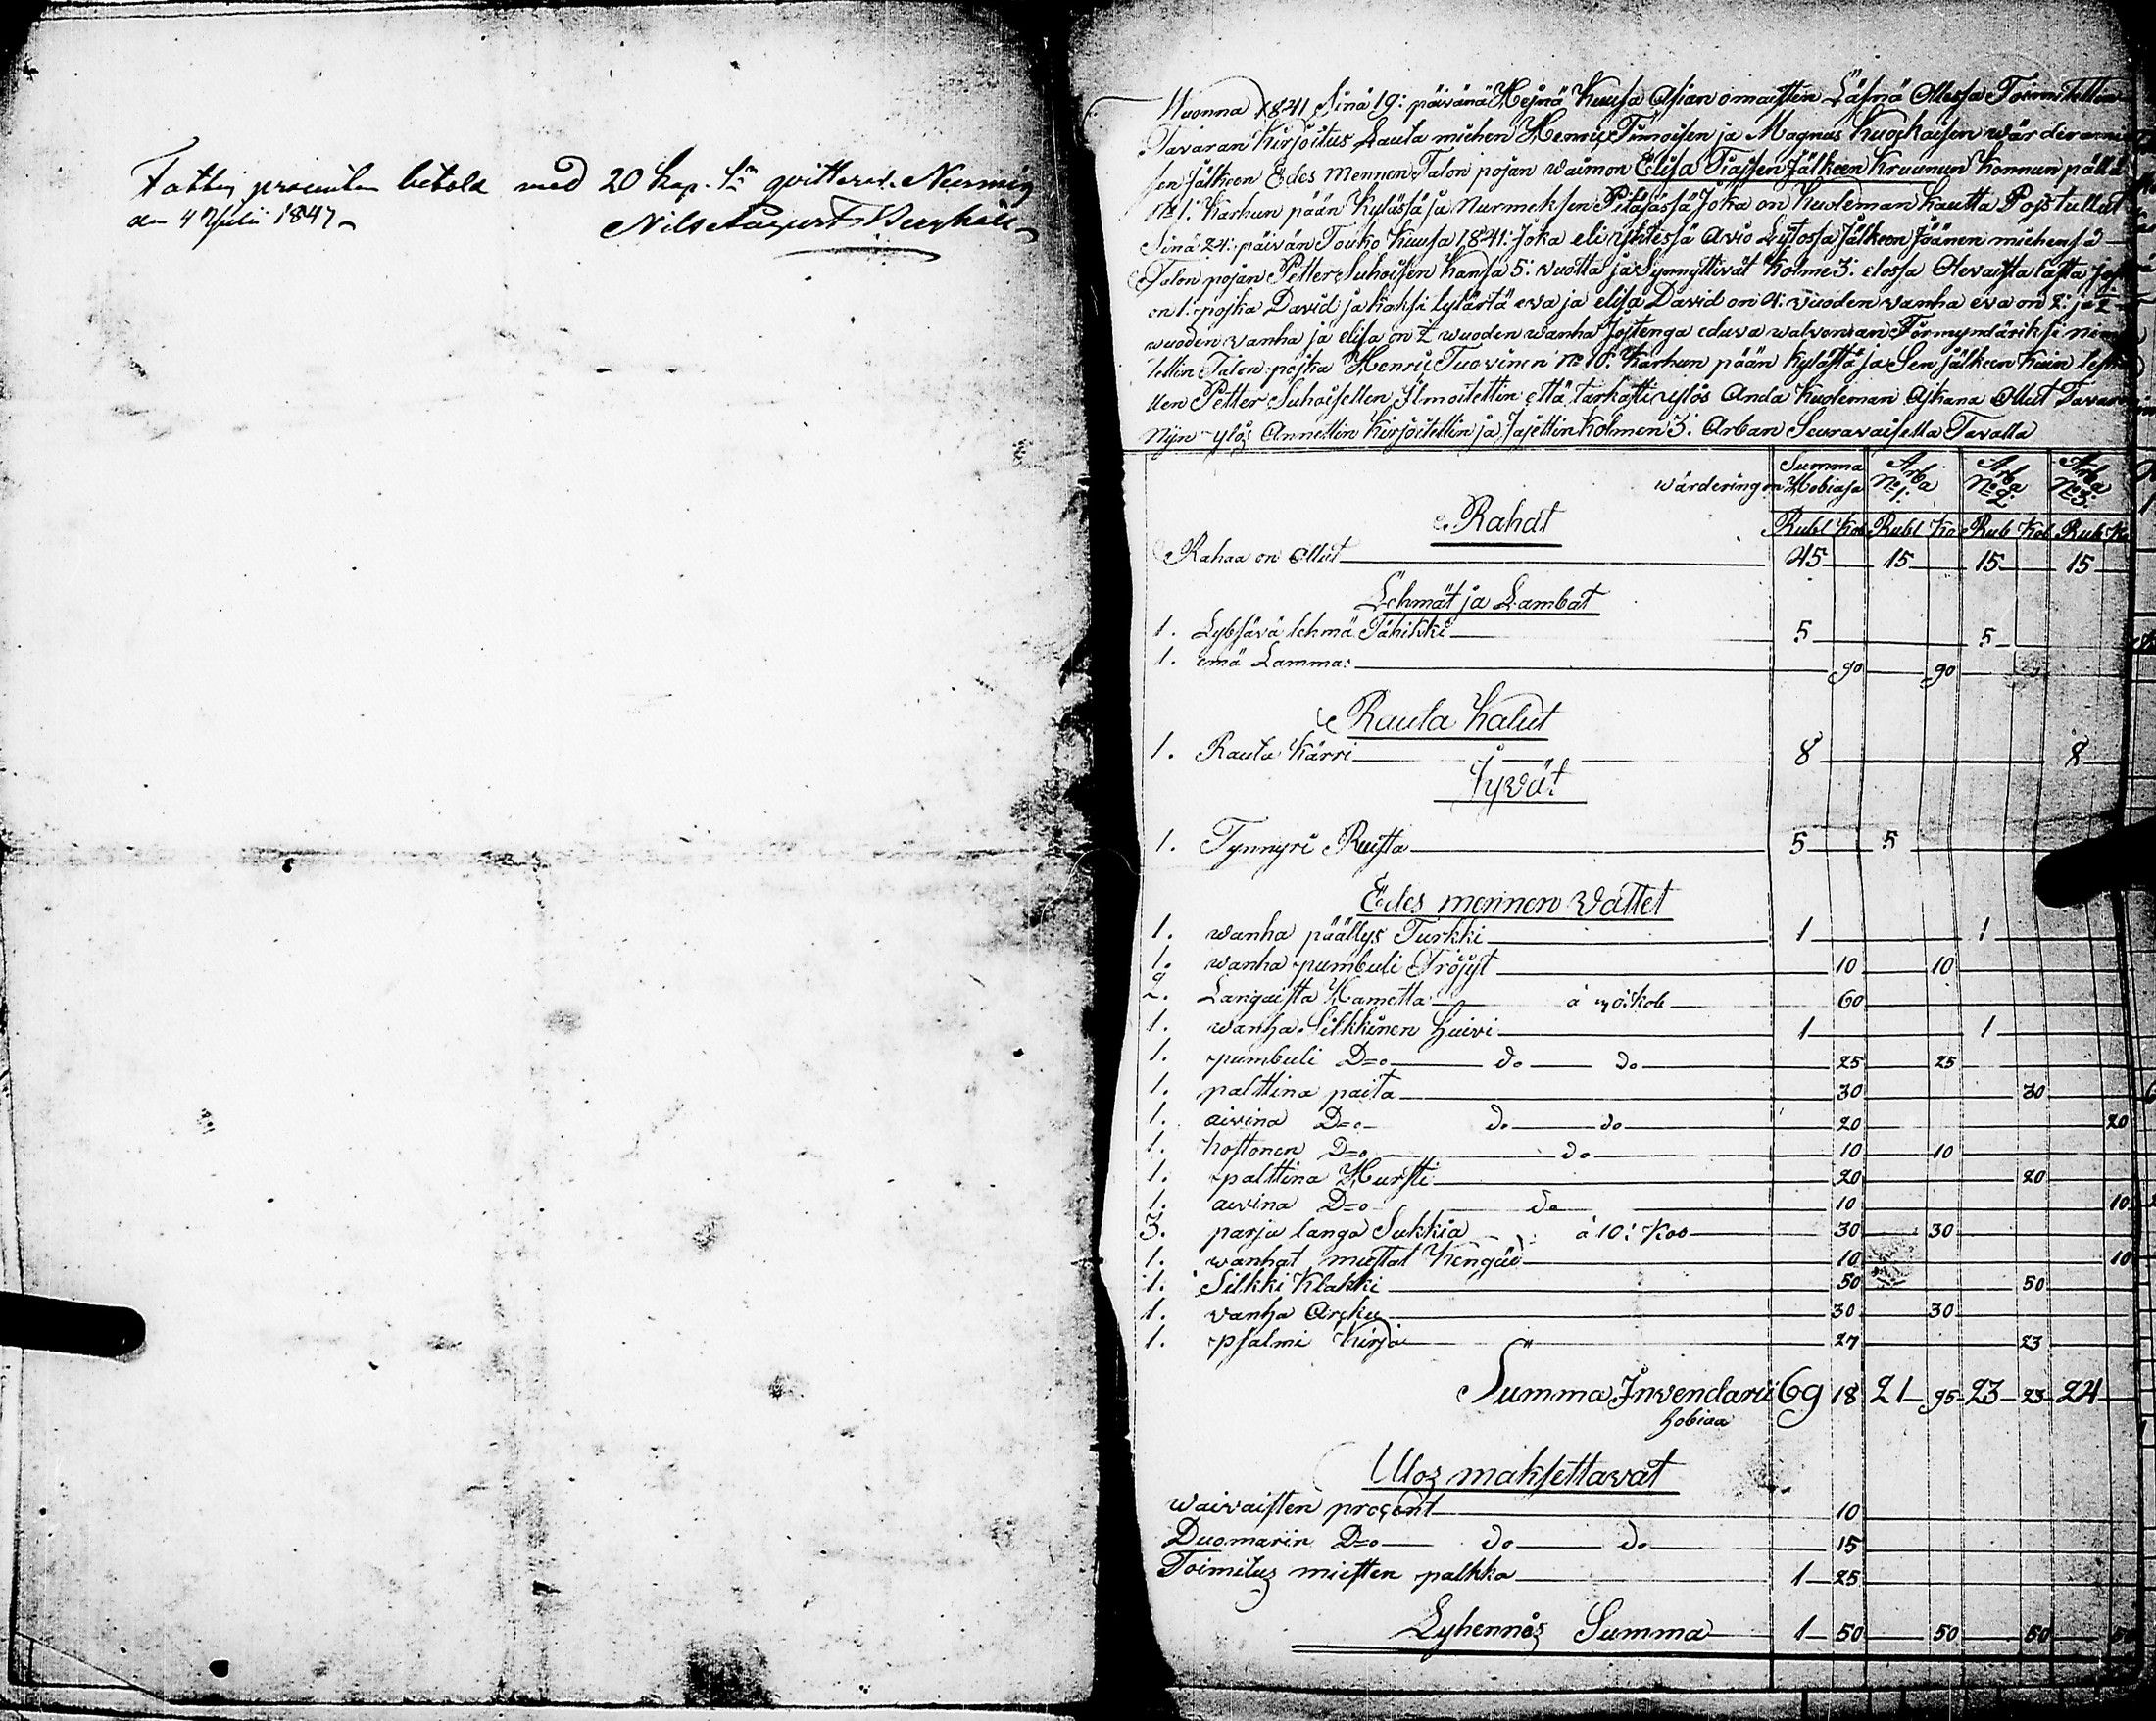 Fattig procenten betald med 20 kop. Sr qvitteras. Nurmis
den 4 Julii 1847
Nils August Berghäll
Wuonna 1841 Sinä 19: päivänä Hejnä Kuusa Asian omaisten Läsnä Ollessa Toimitettin
Tavaran Kirjoitus Lauta miehen Henric Timoisen ja Magnus Kuoskaisen wärderarmi
sen Jälkeen Edes mennen Talon pojan waimon Elisa Tiassen Jälkeen Kruunun Konnun päldä
No 1: Karhun pään Kylässä ja Nurmeksen Pitäjässä Joka on Kuoleman Kautta Pois tullut
Sinä 24: päivän Touko Kuusa 1841: Joka eli yhtessä Avio Lijtossa Jälkeen Jäänen miehensä
Talon pojan Petter Suhoisen Kansa 5: vuotta ja Synnyttivät Kolme 3: elossa Olevaista lasta Jost
on 1: poska David ja Kaksi tytärtä eva ja elisa David on 4: vuoden vanha eva on 2: ja 1/2
wuoden vanha ja elisa on 1/2 wuoden wanha Jostenga eduva walvoman Förmyndäriksi nimi
tettin Talon poska Henric Tuovinen No 10: Karhun pään Kylästä ja Sen Jälkeen Kuin leski
llen Petter Suhoisellen Ilmoitettin että tarkasti ylös Anda Kuoleman Ajkana Ollut Tavara
Nijn ylös Annettin Kirjoitettin ja Jajettin Kolmen 3: Arban Seuravaisella Tavalla
wärderingon Summa Hobiasa Arba No 1: Arba No 2: Arba No 3:
Rubl Kob Rubl Ko Rub Kob Rub Ko
Rahat
Rahaa on Ollut 45 15 15 15
Lehmät ja Lambat
1. Lybsävä lehmä Tähikki 5 5
1. emä Lammas 90 90
Rauta Kalut
1. Rauta Kärri 8 8
Jyvät
1. Tynnyri Ruista 5 5
Edes mennen Vattet
1. wanha päällys Turkki 1 1
1. wanha pumbuli Tröjyt 10 10
2. Langaista Hametta á 30: Kob 60
1. wanha Silkkinen Huivi 1 1
1. pumbuli D=o do do 25 25
1. palttina paita 30 30
1. aivina D=o do do 20 20
1. Rostonen D=o do 10 10
1. palttina Hursti 20 20
1. aivina D=o do 10 10
3. parja langa Sukkia á 10: Kob 30 30
1. wanhat mustat Kengäd 10 10
1. Silkki Klakki 50 50
1. vanha Arcku 30 30
1. psalmi Kirja 27 23
Summa Invendarii 69 18 21 95 23 23 24
hobiaa
Ulos maksettavat
waivaisten procent 10
Duomarin D=o do do 15
Toimitus miesten palkka 1 25
Lyhennös Summa 1 50 50 50 50